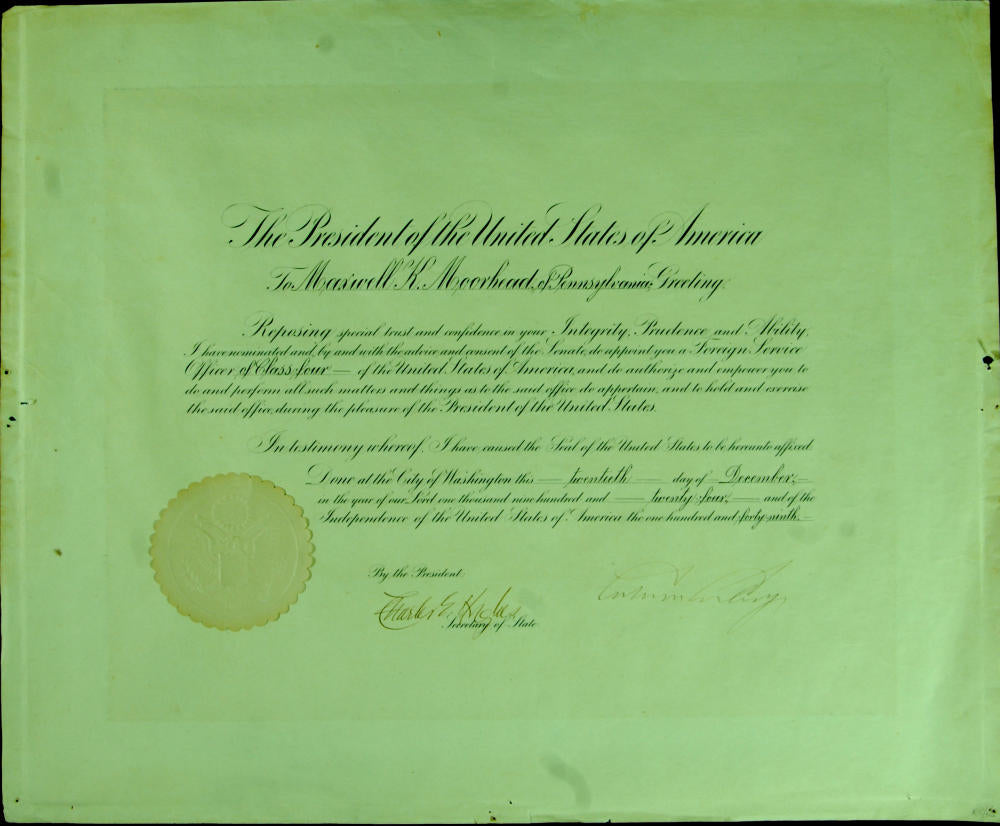 The President of the United States of America
To Maxwell K. Moorhead, of Pennsylvania, Greeting:
Reposing special trust and confidence in your Integrity, Prudence and Ability,
I have nominated and, by and with the advice and consent of the Senate, do appoint you a Foreign Service
Officer, of Class four — of the United States of America, and do authorize and empower you to
do and perform all such matters and things as to the said office do appertain, and to hold and exercise
the said office, during the pleasure of the President of the United States.
In testimony whereof, I have caused the Seal of the United States to be hereunto affixed.
Done at the City of Washington this — twentieth — day of — December, —
in the year of our Lord one thousand nine hundred and — twenty-four, — and of the
Independence of the United States of America the one hundred and forty-ninth. —
By the President:
Charles E. Hughes
Secretary of State.